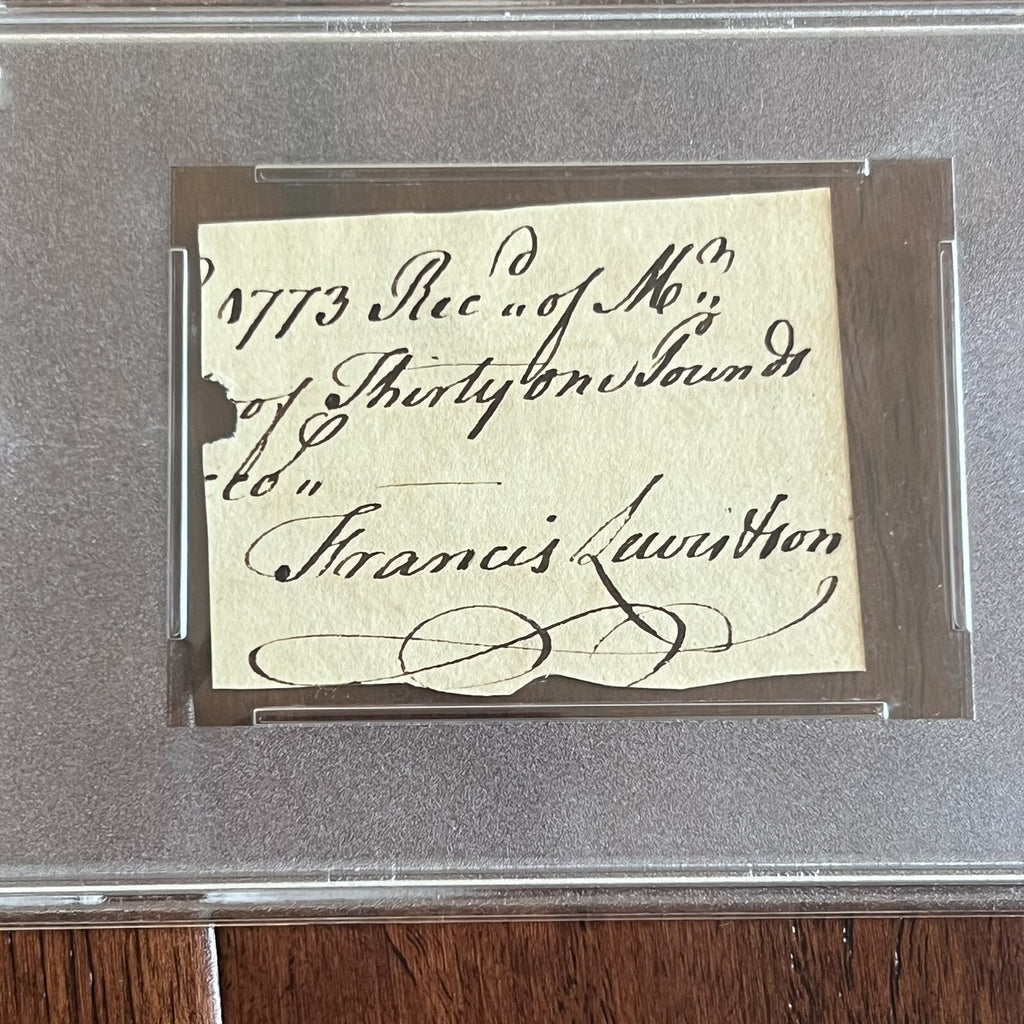 1773 Rec.d of Mr.
of Thirty one Pounds
Francis Lewitson